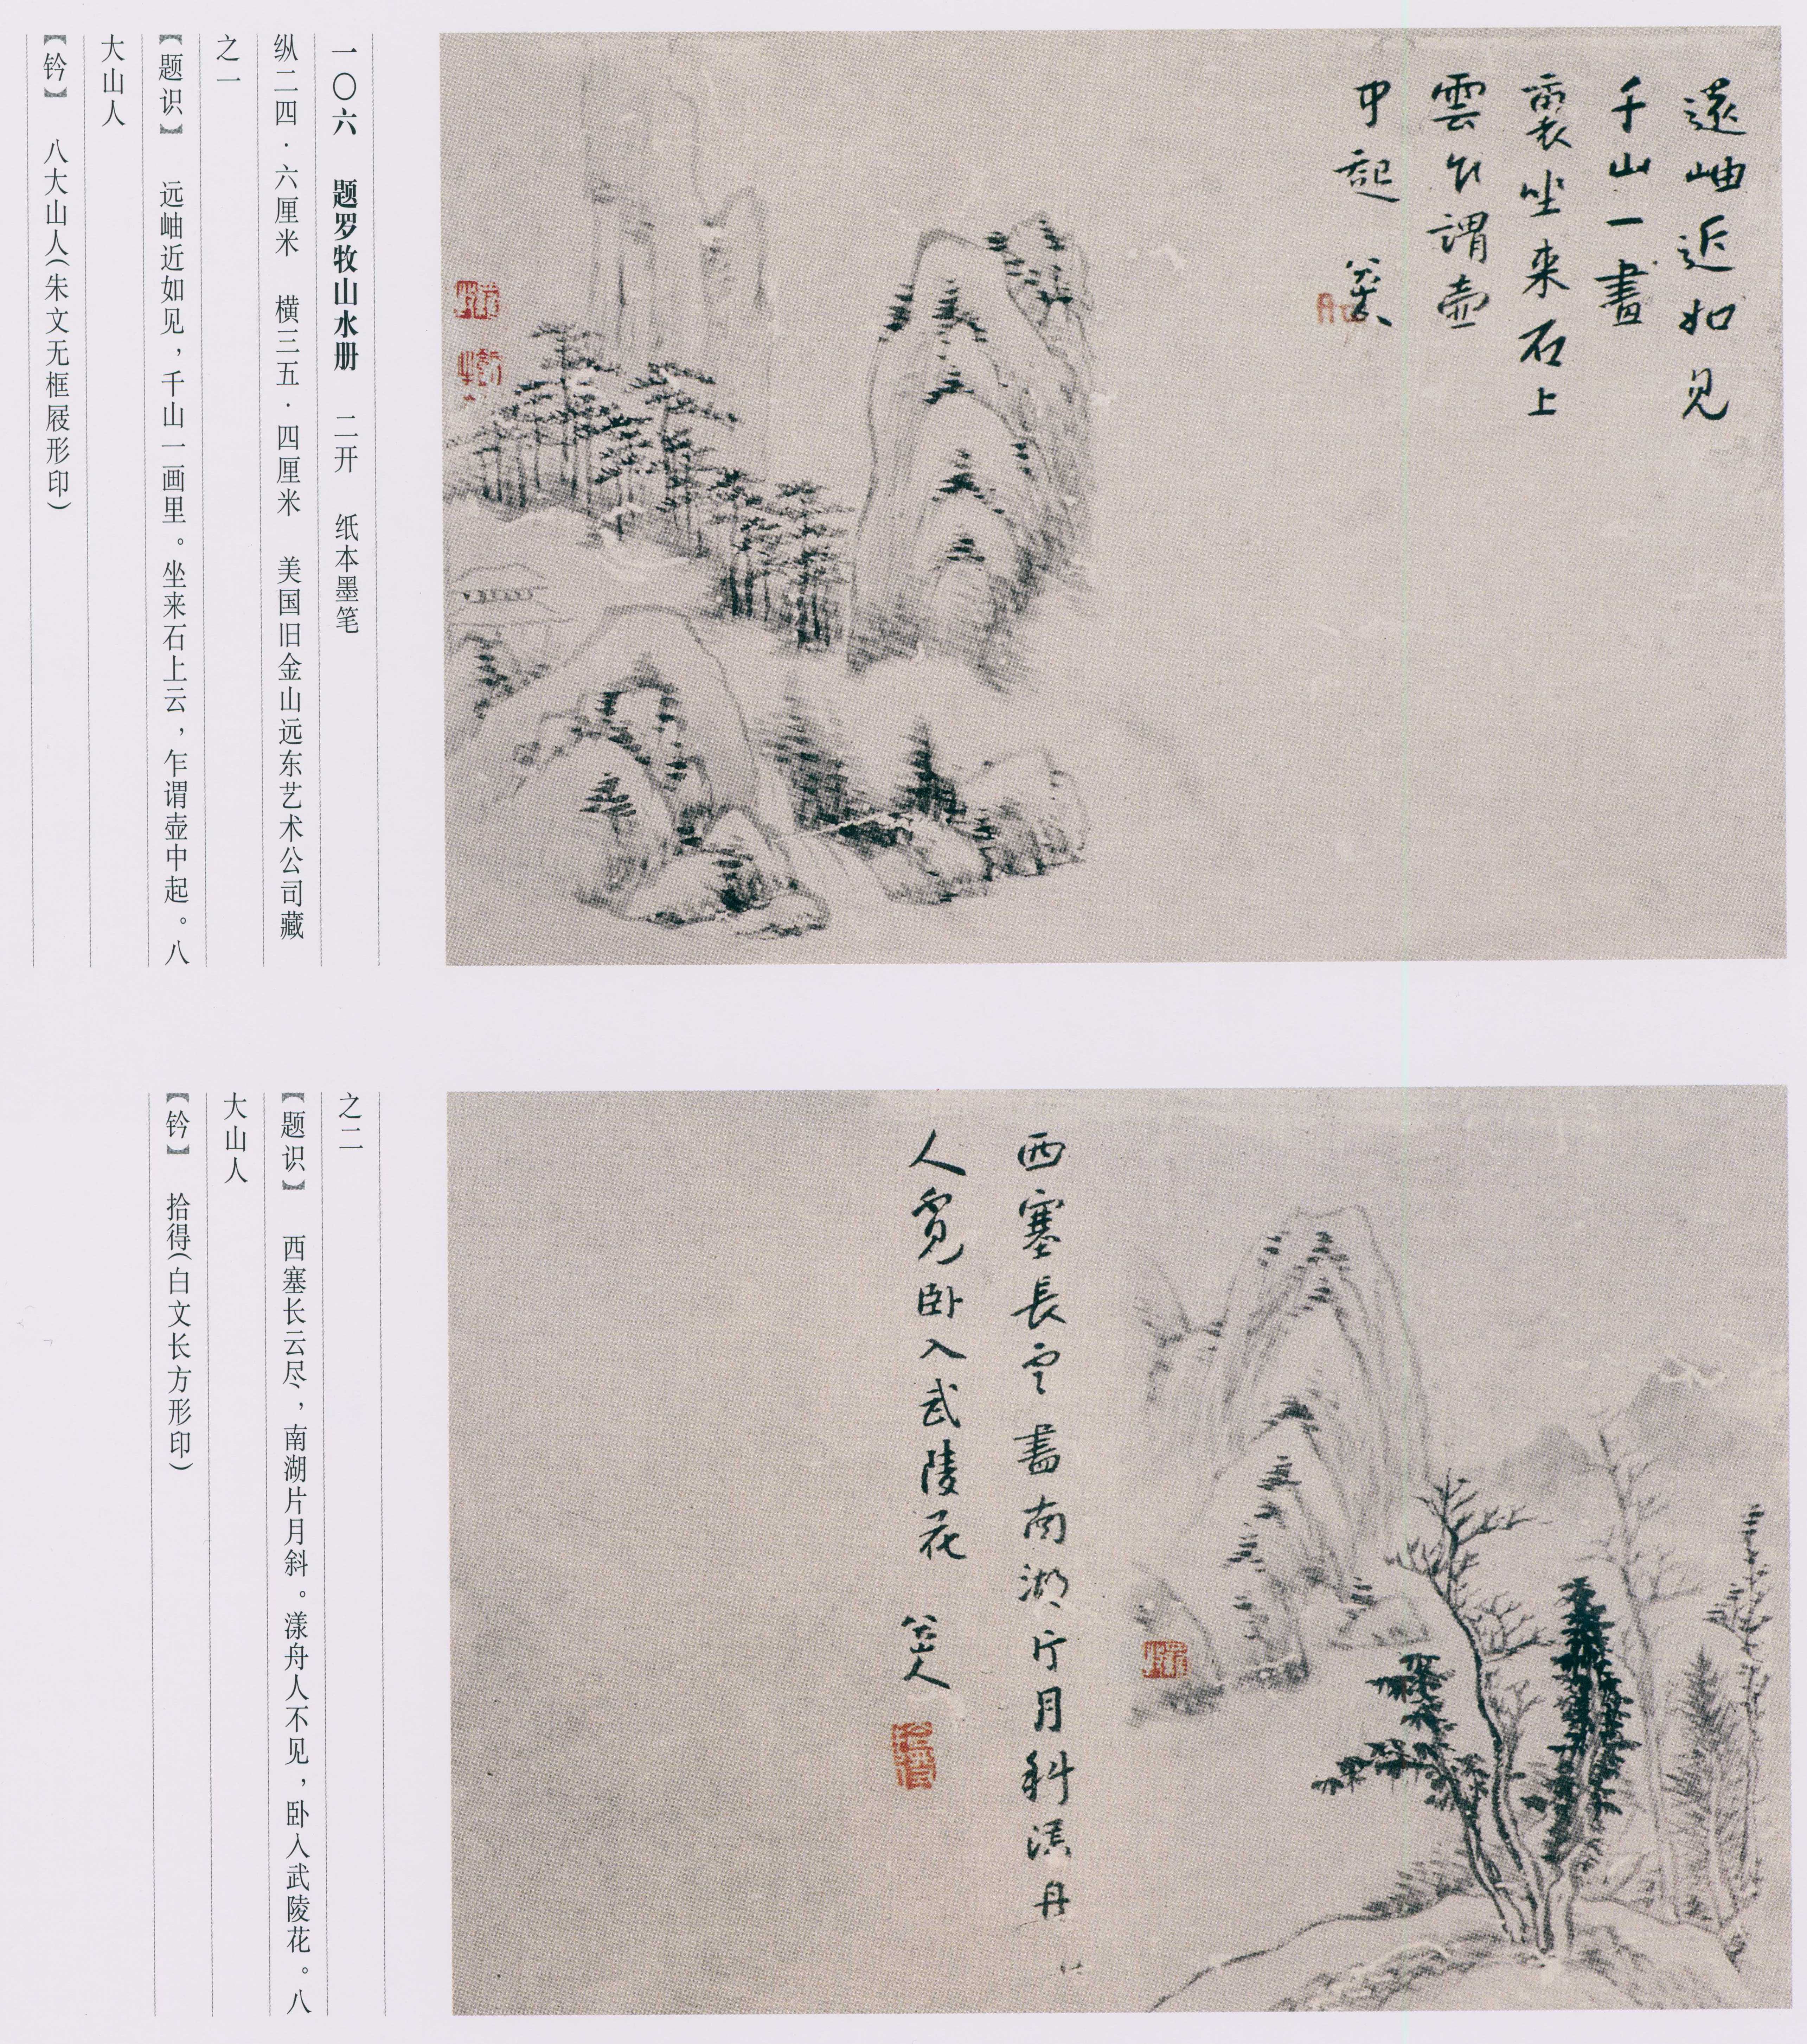 遠岫近如見
千山一畫
裏坐来石上
雲乍謂壺
中起 八大山人
羅牧
一〇六 题罗牧山水册 二开 纸本墨笔
纵二四·六厘米 横三五·四厘米 美国旧金山远东艺术公司藏
之一
【题识】 远岫近如见，千山一画里。坐来石上云，乍谓壶中起。八
大山人
【钤】 八大山人（朱文无框屐形印）
羅牧
西塞長雲盡南湖片月斜漾舟
人覓卧入武陵花 八大山人
拾得
之二
【题识】 西塞长云尽，南湖片月斜。漾舟人不见，卧入武陵花。八
大山人
【钤】 拾得（白文长方形印）